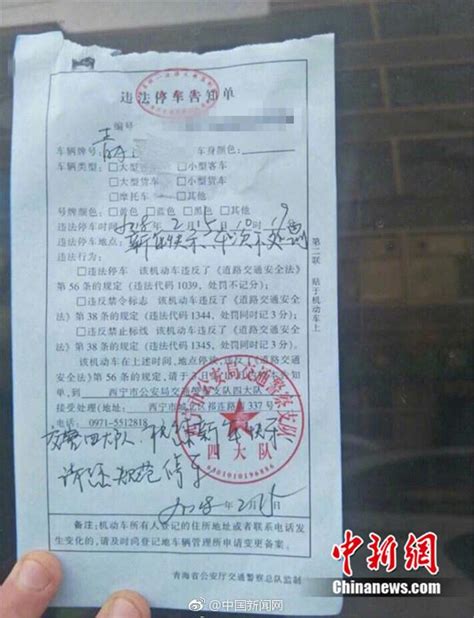 违法停车告知单
编号
车辆牌号:青 车身颜色:
车辆类型:□大型客车 □小型客车
□大型货车 □小型货车
□摩托车 □其他
号牌颜色:□黄色 □蓝色 □黑色 □其他
违法停车时间:2018年2月15日10时19
违法停车地点:新年快乐 车次不处罚
违法行为:
□违法停车 该机动车违反了《道路交通安全法》
第56条的规定(违法代码1039,处罚不记分);
□违反禁令标志 该机动车违反了《道路交通安全
法》第38条的规定(违法代码1344,处罚同时记3分);
□违反禁止标线 该机动车违反了《道路交通安全
法》第38条的规定(违法代码1345,处罚同时记3分);
该机动车在上述时间、地点停放,违反了《道路交通
安全法》第56条的规定,请于3日
地,到 西宁市公安局交通警察支队四大队
接受处理(地址: 西宁市城北区裕连路 337号
电话:0971-5512818
交警四大队 祝您新年快乐
请您规范停车
2018年2月15
备注:机动车所有人登记的住所地址或者联系电话发
生变化的,请及时向登记地车辆管理所申请变更备案。
青海省公安厅交通警察总队监制
第二联 贴于机动车上
市公安局交通警察支队
四大队
中新网
Chinanews.com
@中国新闻网